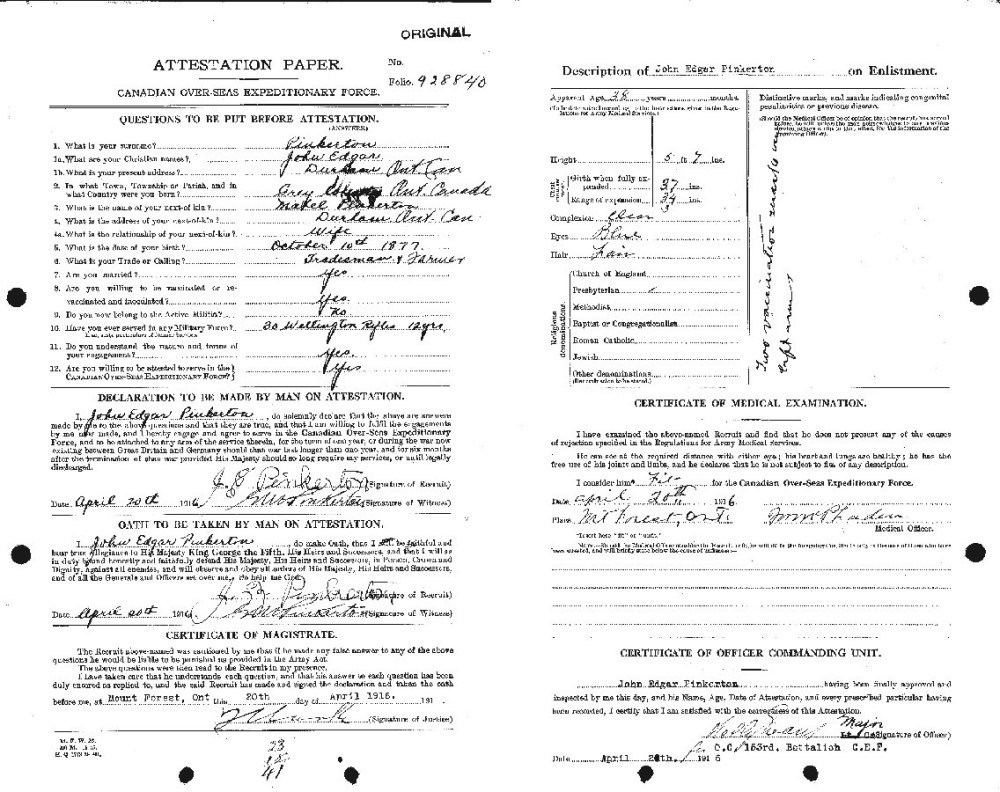 ORIGINAL
ATTESTATION PAPER.
No.
Folio. 928840
CANADIAN OVER-SEAS EXPEDITIONARY FORCE.
QUESTIONS TO BE PUT BEFORE ATTESTATION.
(ANSWERS)
1. What is your surname? Pinkerton
1a. What are your Christian names? John Edgar
1b. What is your present address? Durham Ont Can
2. In what Town, Township or Parish, and in
what Country were you born? Grey Ont. Canada
3. What is the name of your next-of-kin? Mabel Pinkerton
4. What is the address of your next-of-kin? Durham Ont. Can
4a. What is the relationship of your next-of-kin? Wife
5. What is the date of your birth? October 10th 1877.
6. What is your Trade or Calling? Tradesman & Farmer
7. Are you married? Yes
8. Are you willing to be vaccinated or re-
vaccinated and inoculated? Yes
9. Do you now belong to the Active Militia? No
10. Have you ever served in any Military Force? 30 Wellington Rifles 12 yrs
If so, state particulars of former Service.
11. Do you understand the nature and terms of
your engagement? Yes.
12. Are you willing to be attested to serve in the
CANADIAN OVER-SEAS EXPEDITIONARY FORCE? Yes
DECLARATION TO BE MADE BY MAN ON ATTESTATION.
I, John Edgar Pinkerton, do solemnly declare that the above are answers
made by me to the above questions and that they are true, and that I am willing to fulfil the engagements
by me now made, and I hereby engage and agree to serve in the Canadian Over-Seas Expeditionary
Force, and to be attached to any arm of the service therein, for the term of one year, or during the war now
existing between Great Britain and Germany should that war last longer than one year, and for six months
after the termination of that war provided His Majesty should so long require my services, or until legally
discharged.
J. E. Pinkerton (Signature of Recruit)
Date April 20th 1916 Pinkerton (Signature of Witness)
OATH TO BE TAKEN BY MAN ON ATTESTATION.
I, John Edgar Pinkerton, do make Oath, that I will be faithful and
bear true Allegiance to His Majesty King George the Fifth, His Heirs and Successors, and that I will as
in duty bound honestly and faithfully defend His Majesty, His Heirs and Successors, in Person, Crown and
Dignity, against all enemies, and will observe and obey all orders of His Majesty, His Heirs and Successors,
and of all the Generals and Officers set over me. So help me God.
J. E. Pinkerton (Signature of Recruit)
Date April 20th 1916 Pinkerton (Signature of Witness)
CERTIFICATE OF MAGISTRATE.
The Recruit above-named was cautioned by me that if he made any false answer to any of the above
questions he would be liable to be punished as provided in the Army Act.
The above questions were then read to the Recruit in my presence.
I have taken care that he understands each question, and that his answer to each question has been
duly entered as replied to, and the said Recruit has made and signed the declaration and taken the oath
before me, at Mount Forest, Ont this 20th day of April 1916. 191
(Signature of Justice)
M. F. W. 23.
Description of John Edgar Pinkerton on Enlistment.
Apparent Age 38 years months.
Distinctive marks, and marks indicating congenital
peculiarities or previous disease.
Height 5 ft 7 ins.
Girth when fully ex-
panded 37 ins.
Range of expansion 34 ins.
Complexion Clear
Eyes Blue
Hair Fair
Religious denominations.
Church of England
Presbyterian ✓
Methodist
Baptist or Congregationalist
Roman Catholic
Jewish
Other denominations
(Denomination to be stated.)
Two vaccination marks on
left arm
CERTIFICATE OF MEDICAL EXAMINATION.
I have examined the above-named Recruit and find that he does not present any of the causes
of rejection specified in the Regulations for Army Medical Services.
He can see at the required distance with either eye; his heart and lungs are healthy; he has the
free use of his joints and limbs, and he declares that he is not subject to fits of any description.
I consider him* Fit for the Canadian Over-Seas Expeditionary Force.
Date April 20th 1916
Place Mt Forest, Ont.
Medical Officer.
*Insert here "fit" or "unfit."
CERTIFICATE OF OFFICER COMMANDING UNIT.
John Edgar Pinkerton having been finally approved and
inspected by me this day, and his Name, Age, Date of Attestation, and every prescribed particular having
been recorded, I certify that I am satisfied with the correctness of this Attestation.
Major
(Signature of Officer)
O.C. 153rd. Battalion C.E.F.
Date April 20th. 1916